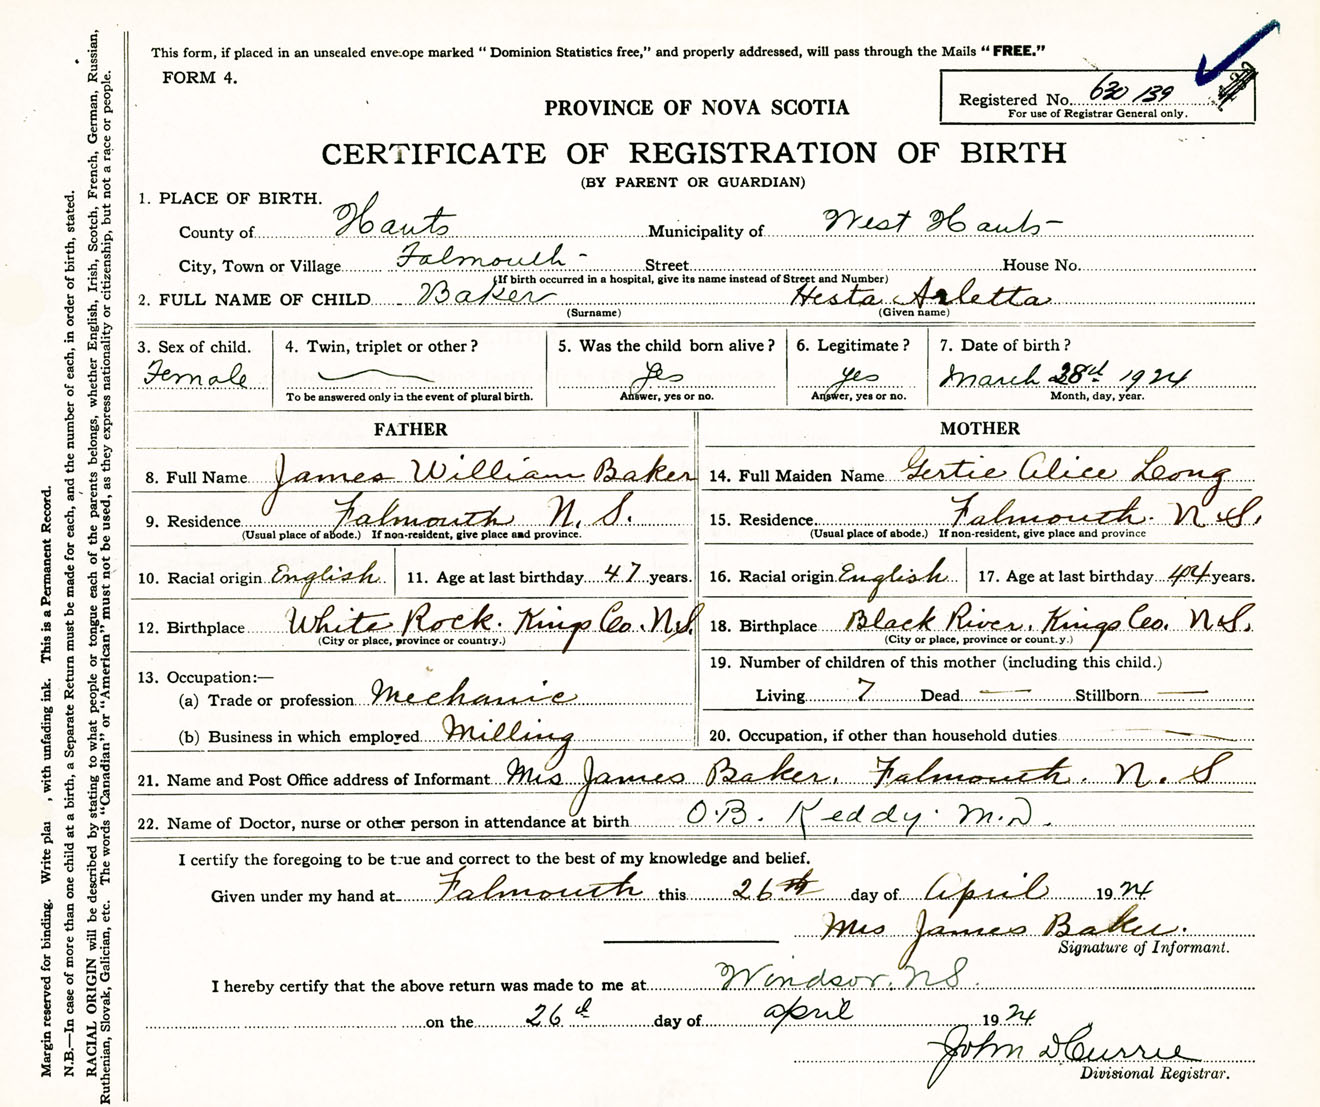 This form, if placed in an unsealed envelope marked "Dominion Statistics free," and properly addressed, will pass through the Mails "FREE."
FORM 4.
Registered No. 630139
For use of Registrar General only.
PROVINCE OF NOVA SCOTIA
CERTIFICATE OF REGISTRATION OF BIRTH
(BY PARENT OR GUARDIAN)
1. PLACE OF BIRTH.
County of Hants Municipality of West Hants
City, Town or Village Falmouth Street House No.
(If birth occurred in a hospital, give its name instead of Street and Number)
2. FULL NAME OF CHILD Baker Hesta Arletta
(Surname) (Given name)
3. Sex of child. 4. Twin, triplet or other? 5. Was the child born alive? 6. Legitimate? 7. Date of birth?
Female yes yes March 28th 1924
To be answered only in the event of plural birth. Answer, yes or no. Answer, yes or no. Month, day, year.
FATHER MOTHER
8. Full Name James William Baker 14. Full Maiden Name Gertie Alice Long
9. Residence Falmouth N. S. 15. Residence Falmouth. N.S.
(Usual place of abode.) If non-resident, give place and province. (Usual place of abode.) If non-resident, give place and province
10. Racial origin English 11. Age at last birthday 47 years. 16. Racial origin English 17. Age at last birthday 44 years.
12. Birthplace White Rock. Kings Co. N.S. 18. Birthplace Black River. Kings Co. N.S.
(City or place, province or country.) (City or place, province or country.)
13. Occupation:— 19. Number of children of this mother (including this child.)
(a) Trade or profession Mechanic Living 7 Dead — Stillborn —
(b) Business in which employed Milling 20. Occupation, if other than household duties —
21. Name and Post Office address of Informant Mrs James Baker. Falmouth. N. S
22. Name of Doctor, nurse or other person in attendance at birth O.B. Keddy. M.D.
I certify the foregoing to be true and correct to the best of my knowledge and belief.
Given under my hand at Falmouth this 26th day of April 1924
Mrs James Baker.
Signature of Informant.
I hereby certify that the above return was made to me at Windsor. NS.
on the 26th day of april 1924
John D Currie
Divisional Registrar.
Margin reserved for binding. Write plai , with unfading ink. This is a Permanent Record.
N.B.—In case of more than one child at a birth, a Separate Return must be made for each, and the number of each, in order of birth, stated.
RACIAL ORIGIN will be described by stating to what people or tongue each of the parents belongs, whether English, Irish, Scotch, French, German, Russian,
Ruthenian, Slovak, Galician, etc. The words "Canadian" or "American" must not be used, as they express nationality or citizenship, but not a race or people.